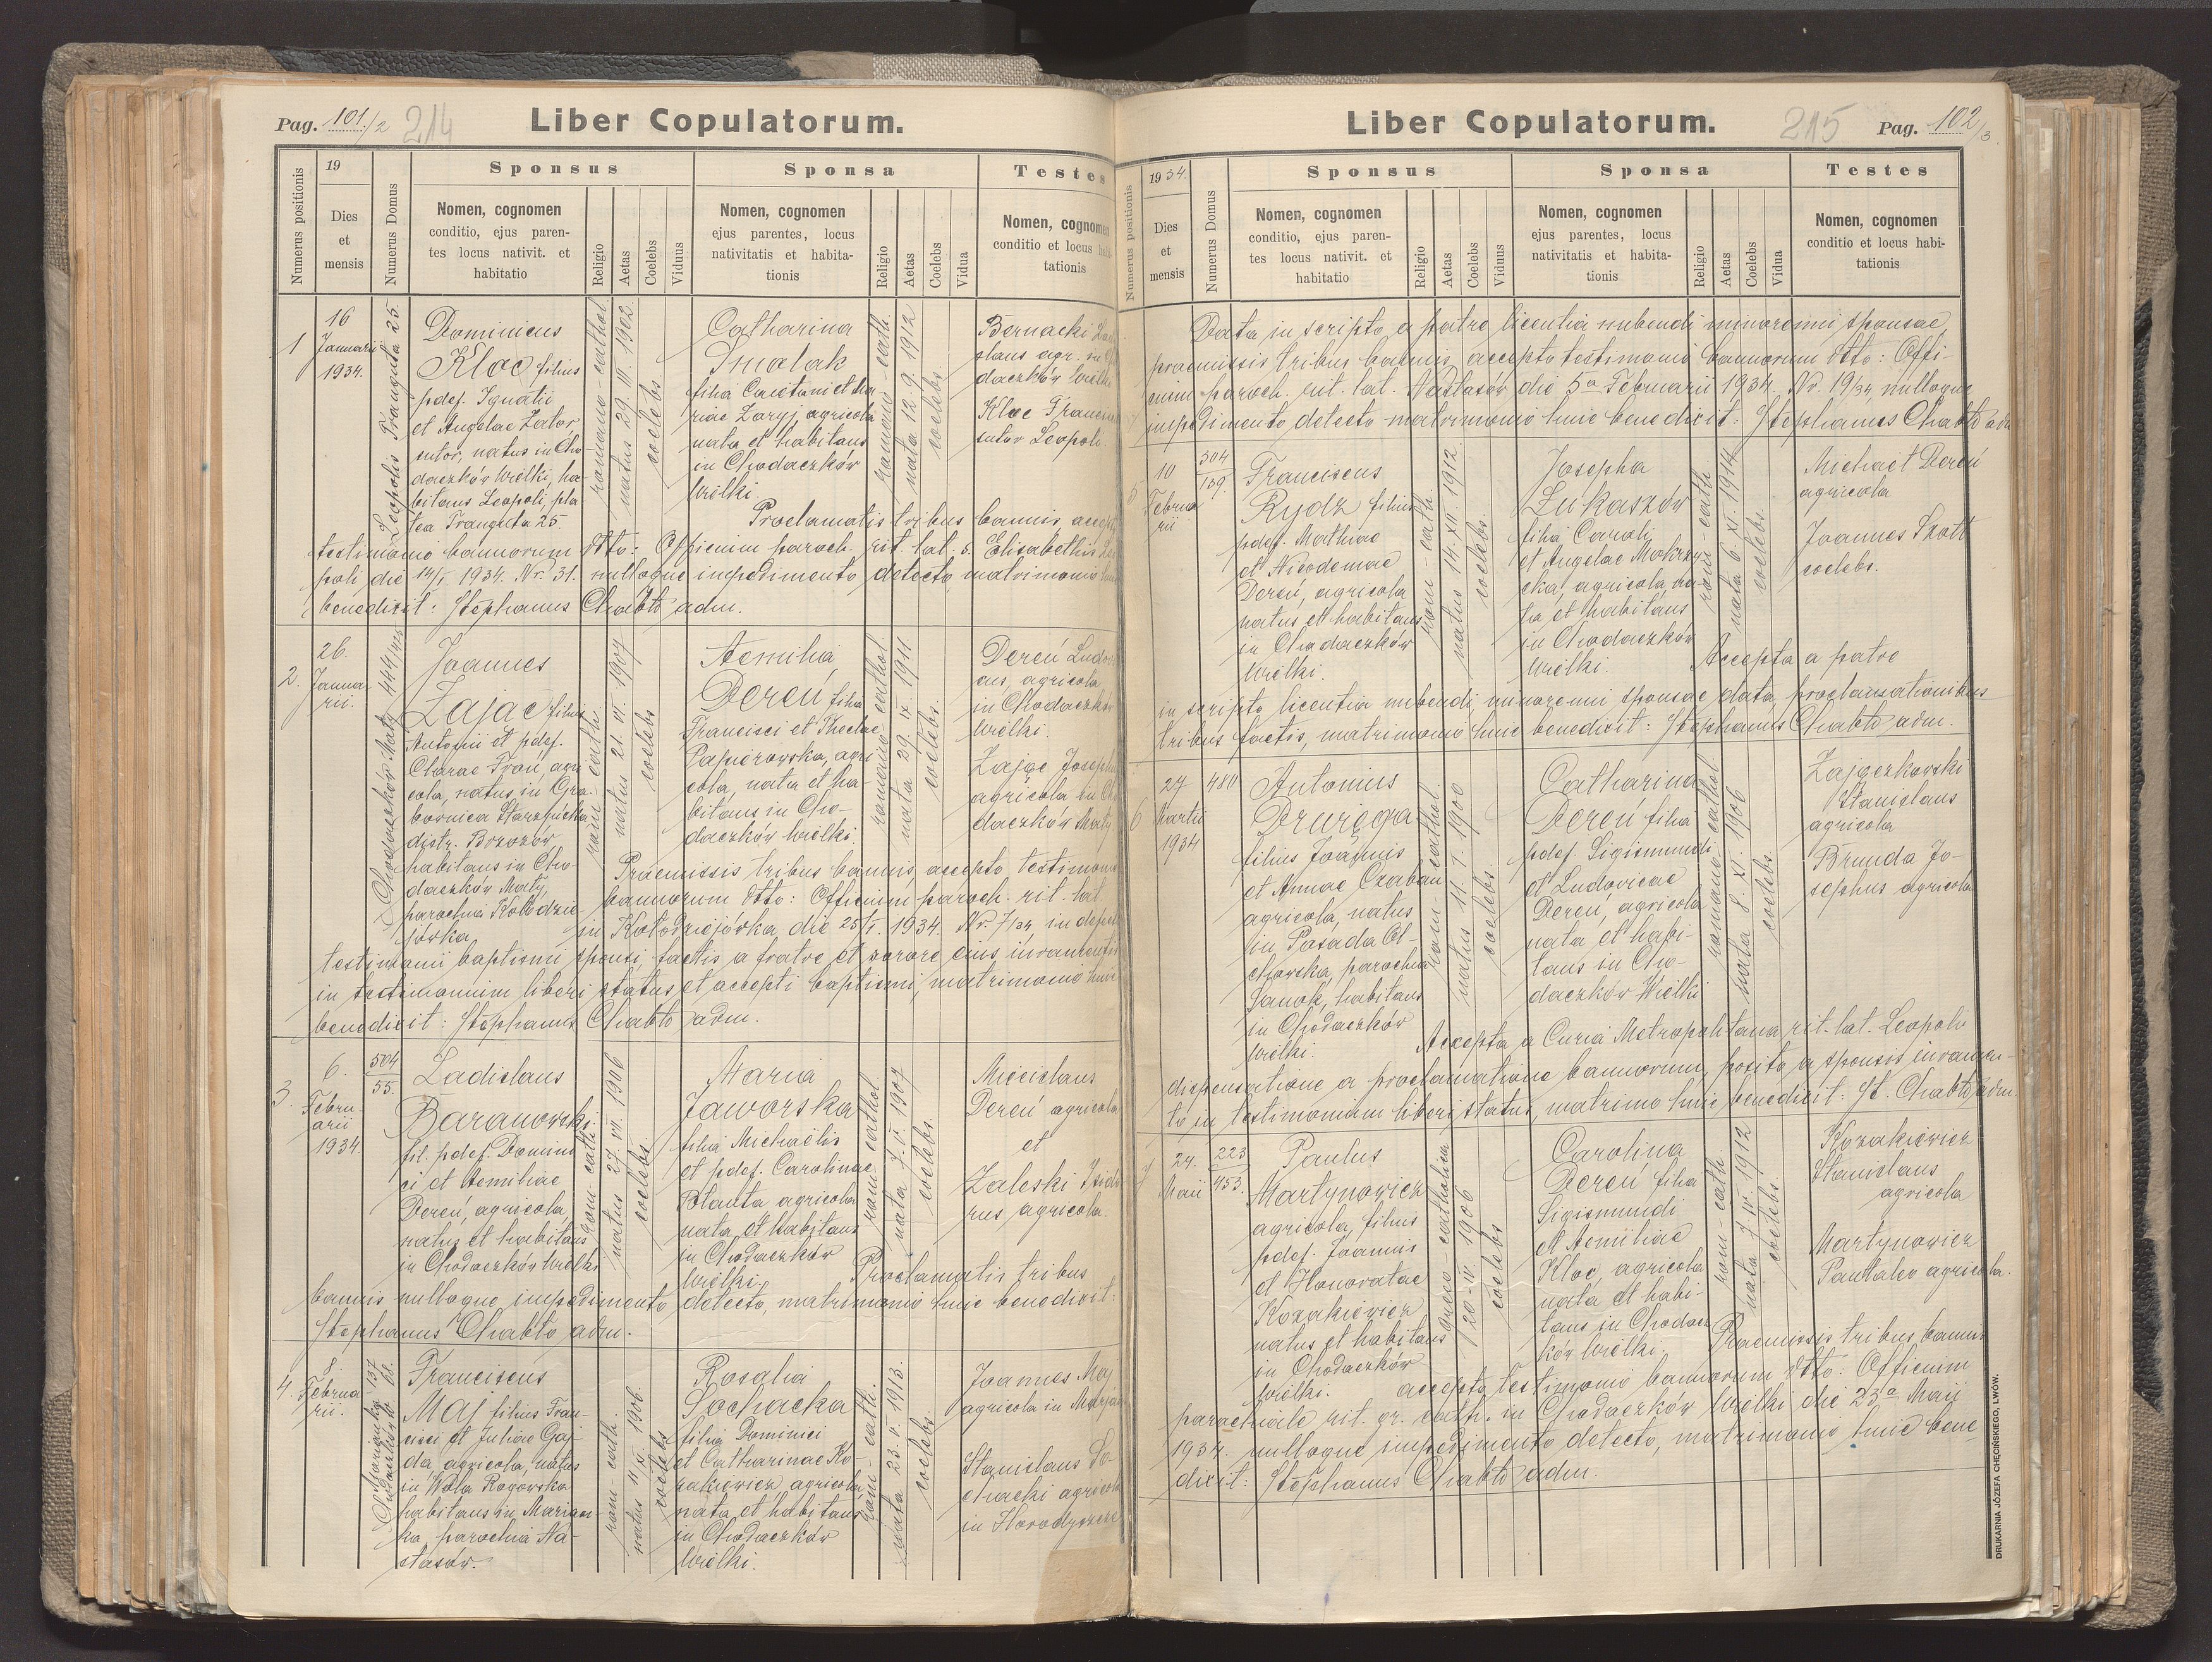 Pag. 101/2 214
Liber Copulatorum.
Numerus positionis
19
Dies
et
mensis
Numerus Domus
Sponsus
Nomen, cognomen
conditio, ejus paren-
tes locus nativit. et
habitatio
Religio
Aetas
Coelebs
Viduus
Sponsa
Nomen, cognomen
ejus parentes, locus
nativitatis et habita-
tionis
Religio
Aetas
Coelebs
Vidua
Testes
Nomen, cognomen
conditio et locus
tationis
1
16
Januarii
1934.
Leopolis Traugutta 25.
Dominicus
Kloc filius
pdef. Ignatii
et Angelae Zator
sutor, natus in Cho-
daczków Wielki, ha-
bitans Leopoli, pla
tea Traugutta 25.
romano-cathol.
natus 29. III. 1902.
coelebs
Catharina
Smolak
filia Caietani et Ma-
riae Zaryj agricola
nata et habitans
in Chodaczków
Wielki.
romano-cath.
nata 12. 9. 1912
coelebs
Bernacki
slaus agr. in
daczków Wielki
Kloc
sutor Leopoli
Proclamatis tribus bannis,
testimonio bannorum dtto: Officium paroch. rit. lat. s. Elisabethis
poli die 14/I. 1934. Nr. 31. nulloque impedimento detecto, matrimonio
benedixit: Stephanus Chabło adm.
2.
26.
Janua
rii.
Chodaczków Mały 444/
Joannes
Zając filius
Antonii et pdef.
Clarae Froń, agri
cola, natus in Gra-
bownica Starzeńska
distr. Brzozów
habitans in Cho-
daczków Mały,
parochia Kołodzie
jówka
rom. cath.
natus 21. VI. 1907
coelebs
Aemilia
Dereń filia
Francisci et Theclae
Papierowska, agri
cola, nata et ha-
bitans in Cho-
daczków Wielki.
romano-cathol.
nata 29. IX. 1911
coelebs.
Dereń
cus, agricola
in Chodaczków
Wielki.
Zając Josephus
agricola in
daczków Mały
Praemissis tribus bannis, accepto testimonio
bannorum dtto: Officium paroch. rit. lat.
in Kołodziejówka die 25/I. 1934. Nr. 7/34,
testimonii baptismi sponsi, factis a fratre et sorore eius
in testimonium liberi status et accepti baptismi, matrimonio huic
benedixit: Stephanus Chabło adm.
3.
6.
Febru-
arii
1934.
504
55.
Ladislaus
Baranowski
fil. pdef. Domini
ci et Aemiliae
Dereń, agricola,
natus et habitans
in Chodaczków Wielki
rom-cath.
natus 27. VII. 1906
coelebs
Maria
Jaworska
filia Michaëlis
et pdef. Carolinae
Błauta agricola
nata et habitans
in Chodaczków
Wielki.
rom. cathol.
nata 7. V. 1907
coelebs.
Miecislaus
Dereń agricola
et
Zaleski Isido
rus agricola.
Proclamatis tribus
bannis nulloque impedimento detecto, matrimonio huic benedixit:
Stephanus Chabło adm.
4.
8.
Februa
rii.
Franciscus
Maj filius Fran-
cisci et Juliae Gaj-
da, agricola, natus
in Wola Rogowska
habitans in Marian-
ka parochia Na-
stasów.
rom. cath.
natus 11. XI. 1906.
coelebs
Rosalia
Sochacka
filia Dominici
et Catharinae Ko-
zakiewicz agricola
nata et habitans
in Chodaczków
Wielki.
rom-cath.
nata 23. V. 1913.
coelebs.
Joannes Maj
agricola in
Stanislaus So-
chacki agricola
in
Liber Copulatorum.
215 Pag. 102/3
Numerus positionis
1934.
Dies
et
mensis
Numerus Domus
Sponsus
Nomen, cognomen
conditio, ejus paren-
tes locus nativit. et
habitatio
Religio
Aetas
Coelebs
Viduus
Sponsa
Nomen, cognomen
ejus parentes, locus
nativitatis et habita-
tionis
Religio
Aetas
Coelebs
Vidua
Testes
Nomen, cognomen
conditio et locus habi-
tationis
Data in scripto a patre licentia nubendi minorenni sponsae,
praemissis tribus bannis, accepto testimonio bannorum dtto: Offi-
cium paroch. rit. lat. Nastasów die 5a Februarii 1934. Nr. 19/34, nulloque
impedimento detecto matrimonio huic benedixit: Stephanus Chabło adm
5
10
Februa
rii
504
139.
Franciscus
Rydz filius
pdef. Mathiae
et Nicodemae
Dereń, agricola
natus et habitans
in Chodaczków
Wielki.
rom-cath.
natus 14. XII. 1912
coelebs.
Josepha
Łukaszów
filia Caroli
et Angelae Mokrzy
cka, agricola, na
ta et habitans
in Chodaczków
Wielki.
rom-cath.
nata 6. XI. 1914
coelebs.
Michaël Dereń
agricola
Joannes Szott
coelebs.
Accepta a patre
in scripto licentia nubendi minorenni sponsae data, proclamationibus
tribus factis, matrimonio huic benedixit: Stephanus Chabło adm.
6
27
Martii
1934
480
Antonius
Drwięga
filius Joannis
et Annae Czaban
agricola, natus
in Posada Ol-
chowska, parochia
Sanok, habitans
in Chodaczków
Wielki.
rom-cathol.
natus 11. 7. 1900
coelebs.
Catharina
Dereń filia
pdef. Sigismundi
et Ludovicae
Dereń, agricola
nata et habi-
tans in Cho-
daczków Wielki
romano cathol
nata 8. XI. 1906
coelebs.
Zajączkowski
Stanislaus
agricola
Brunda Jo-
sephus agricola
Accepta a Curia Metropolitana rit. lat. Leopoli
dispensatione a proclamatione bannorum, posito a sponsis iuramen-
to in testimonium liberi status, matrimo huic benedixit: St. Chabło adm.
7
24.
Maii
223
453.
Paulus
Martynowicz
agricola, filius
pdef. Joannis
et Honoratae
Kozakiewicz
natus et habitans
in Chodaczków
Wielki.
graeco-catholica
20-III. 1906
coelebs
Carolina
Dereń filia
Sigismundi
et Aemiliae
Kloc, agricola
nata et habi-
tans in Chodacz
ków Wielki.
rom-cath.
nata 7. IV. 1912
coelebs.
Kozakiewicz
Stanislaus
agricola
Martynowicz
Pantaleo agricola.
Praemissis tribus bannis
accepto testimonio bannorum dtto: Officium
parochiale rit. gr. cath. in Chodaczków Wielki die 23a Maii
1934. nulloque impedimento detecto, matrimonio huic bene
dixit: Stephanus Chabło adm.
DRUKARNIA JÓZEFA CHĘCIŃSKIEGO, LWÓW.